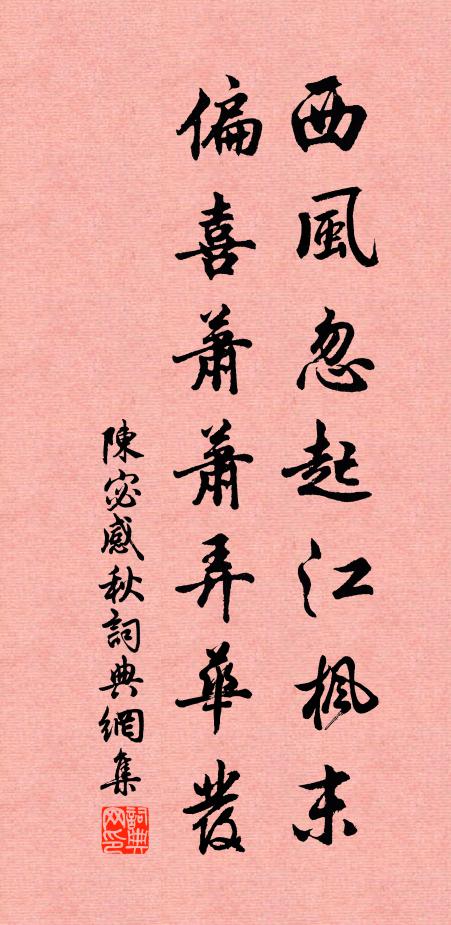 西風忽起江楓末
偏喜蕭蕭弄華發
陳宓感秋詞典網集
詞典网印